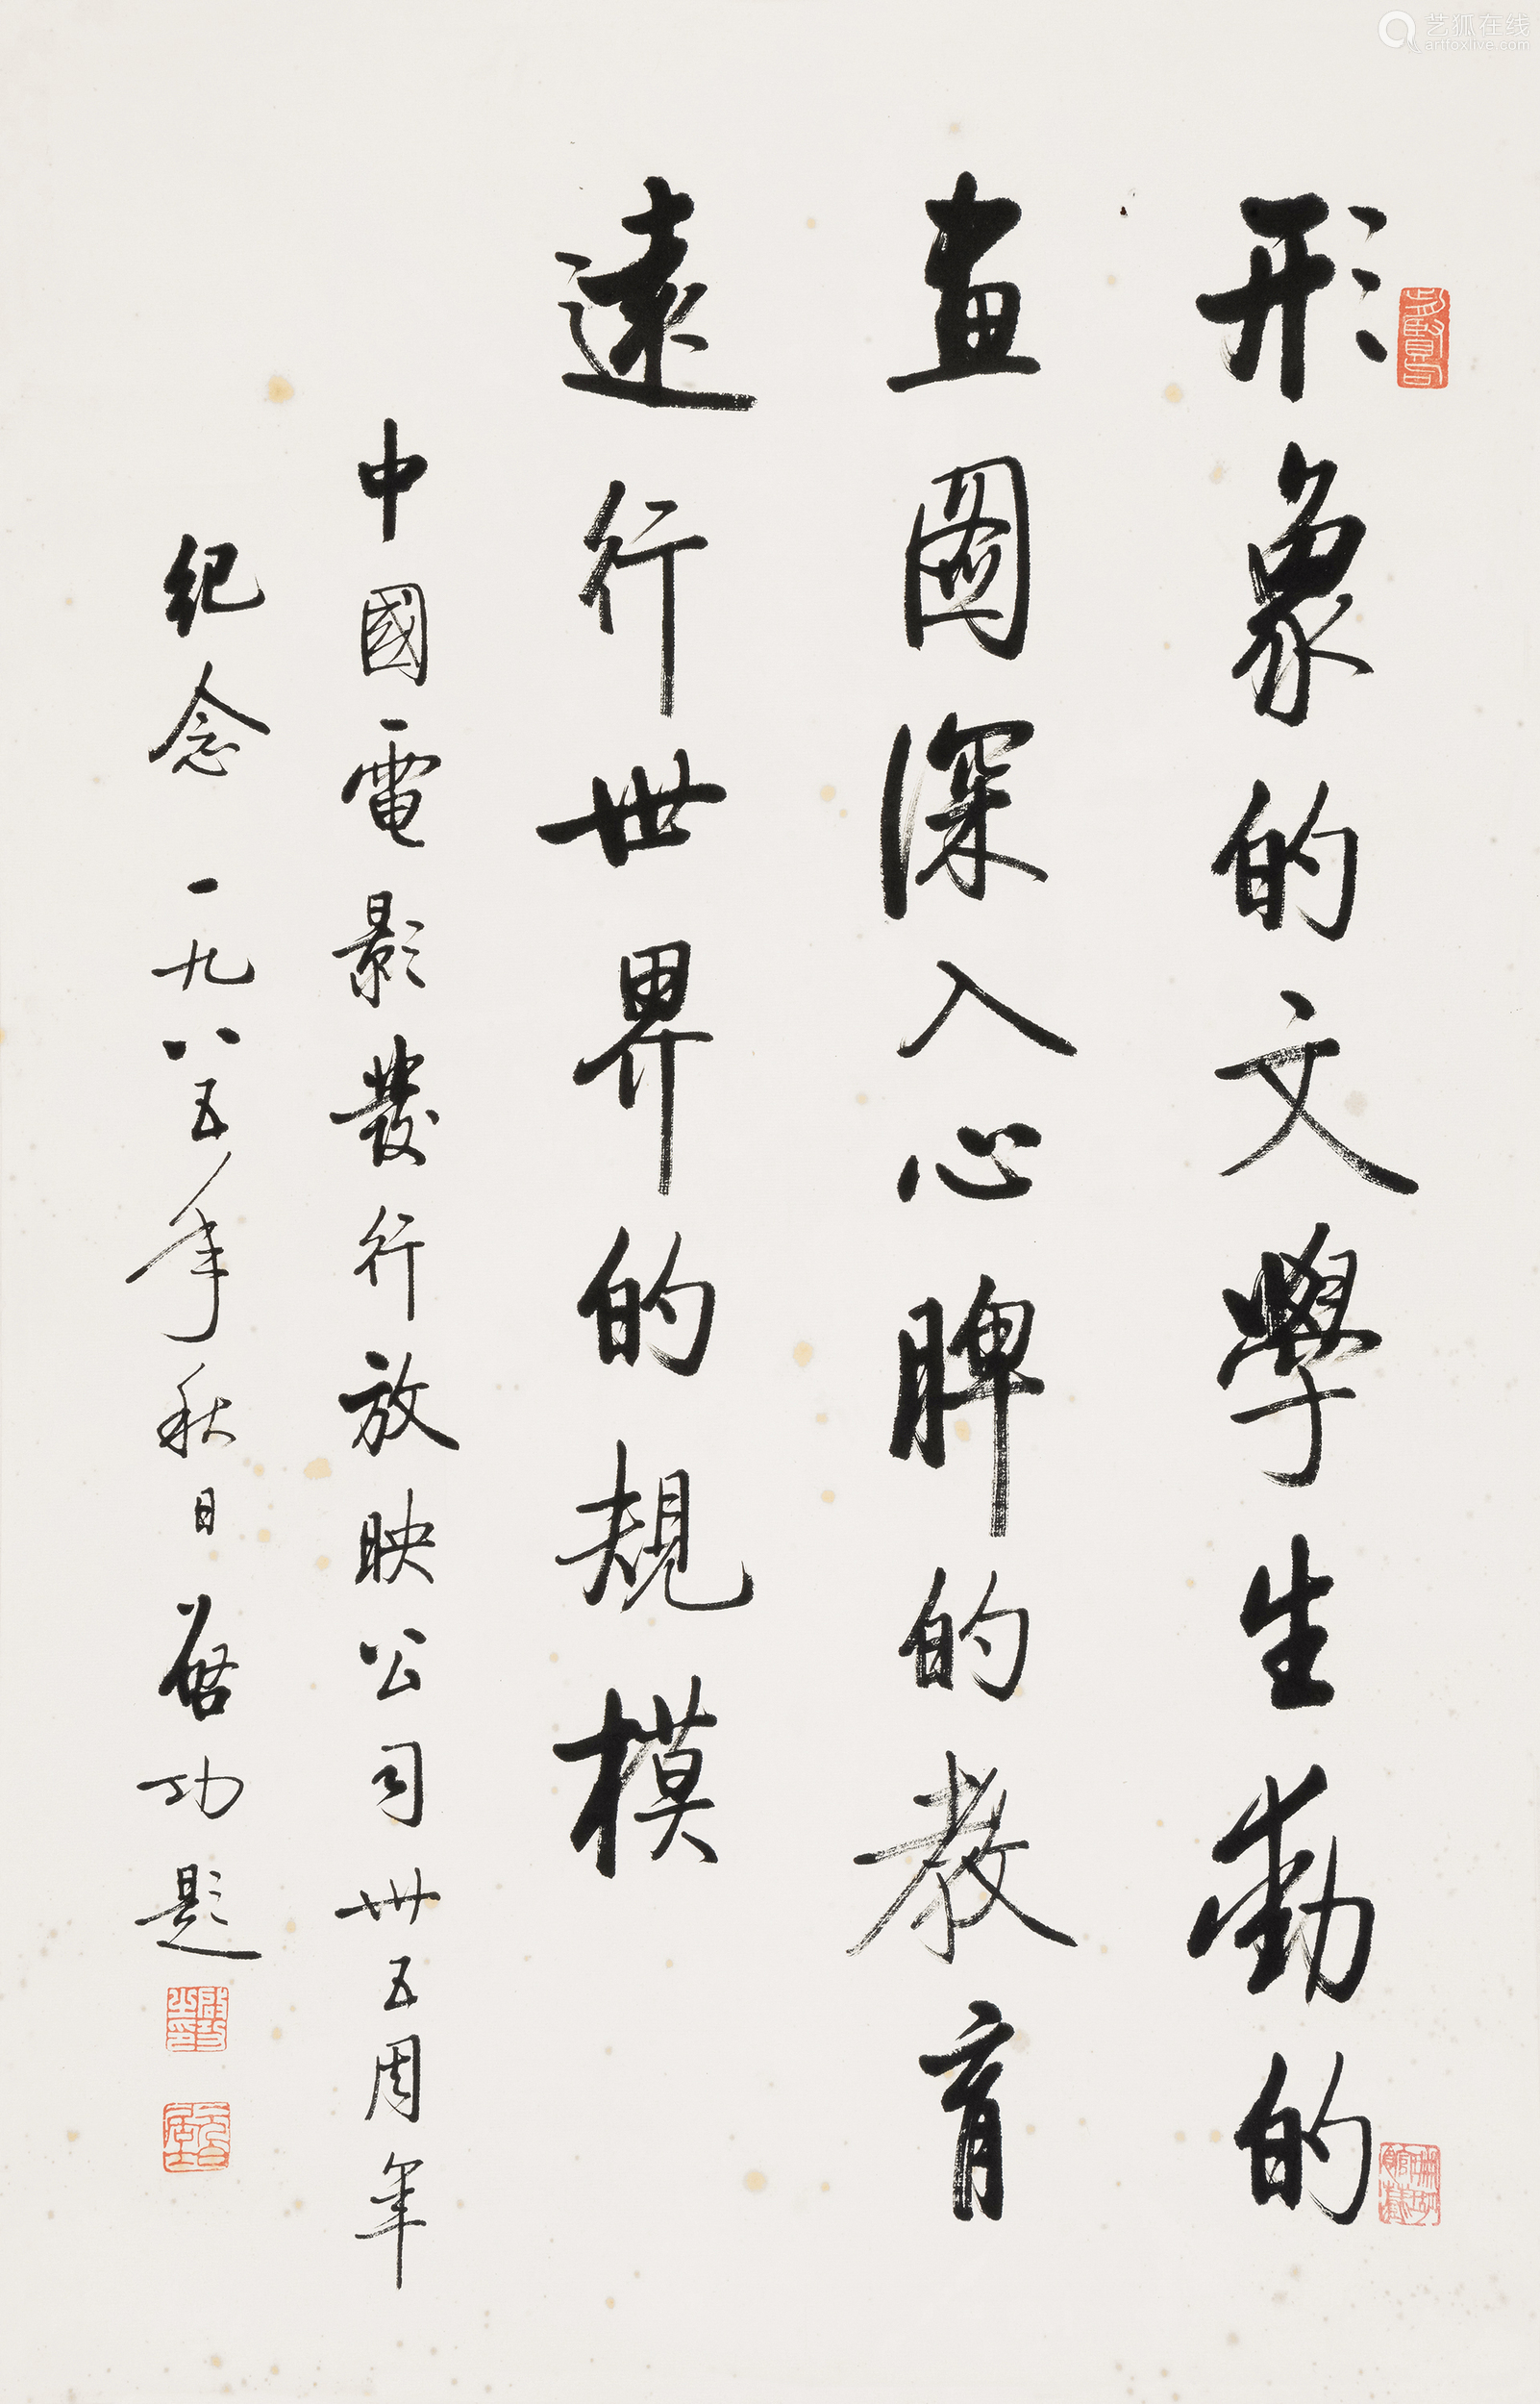 形象的文學生動的
畫圖深入心脾的教育
遠行世界的規模
中國電影發行放映公司卅五周年
紀念 一九八五年秋日 啓功題
艺狐在线
artfoxlive.com